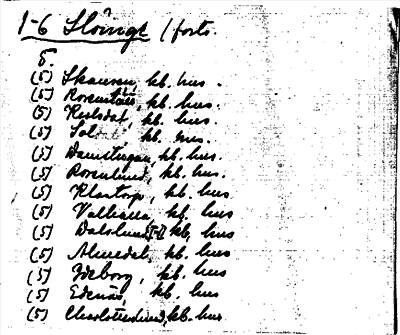 1-6 Slöinge /forts.
5.
(5) Skansen, kb. hus.
(5) Rosentorp, kb. hus.
(5) Karlsdal, kb. hus.
(5) Sol kb. hus.
(5) Damstugan, kb. hus.
(5) Rosenlund, kb. hus.
(5) Klastorp, kb. hus
(5) Valhalla, kb. hus
(5) Dalslund I-II kb. hus
(5) Almedal, kb. hus
(5) Ideborg, kb. hus
(5) Edenäs, kb. hus
(5) Charlottenlund, kb. hus